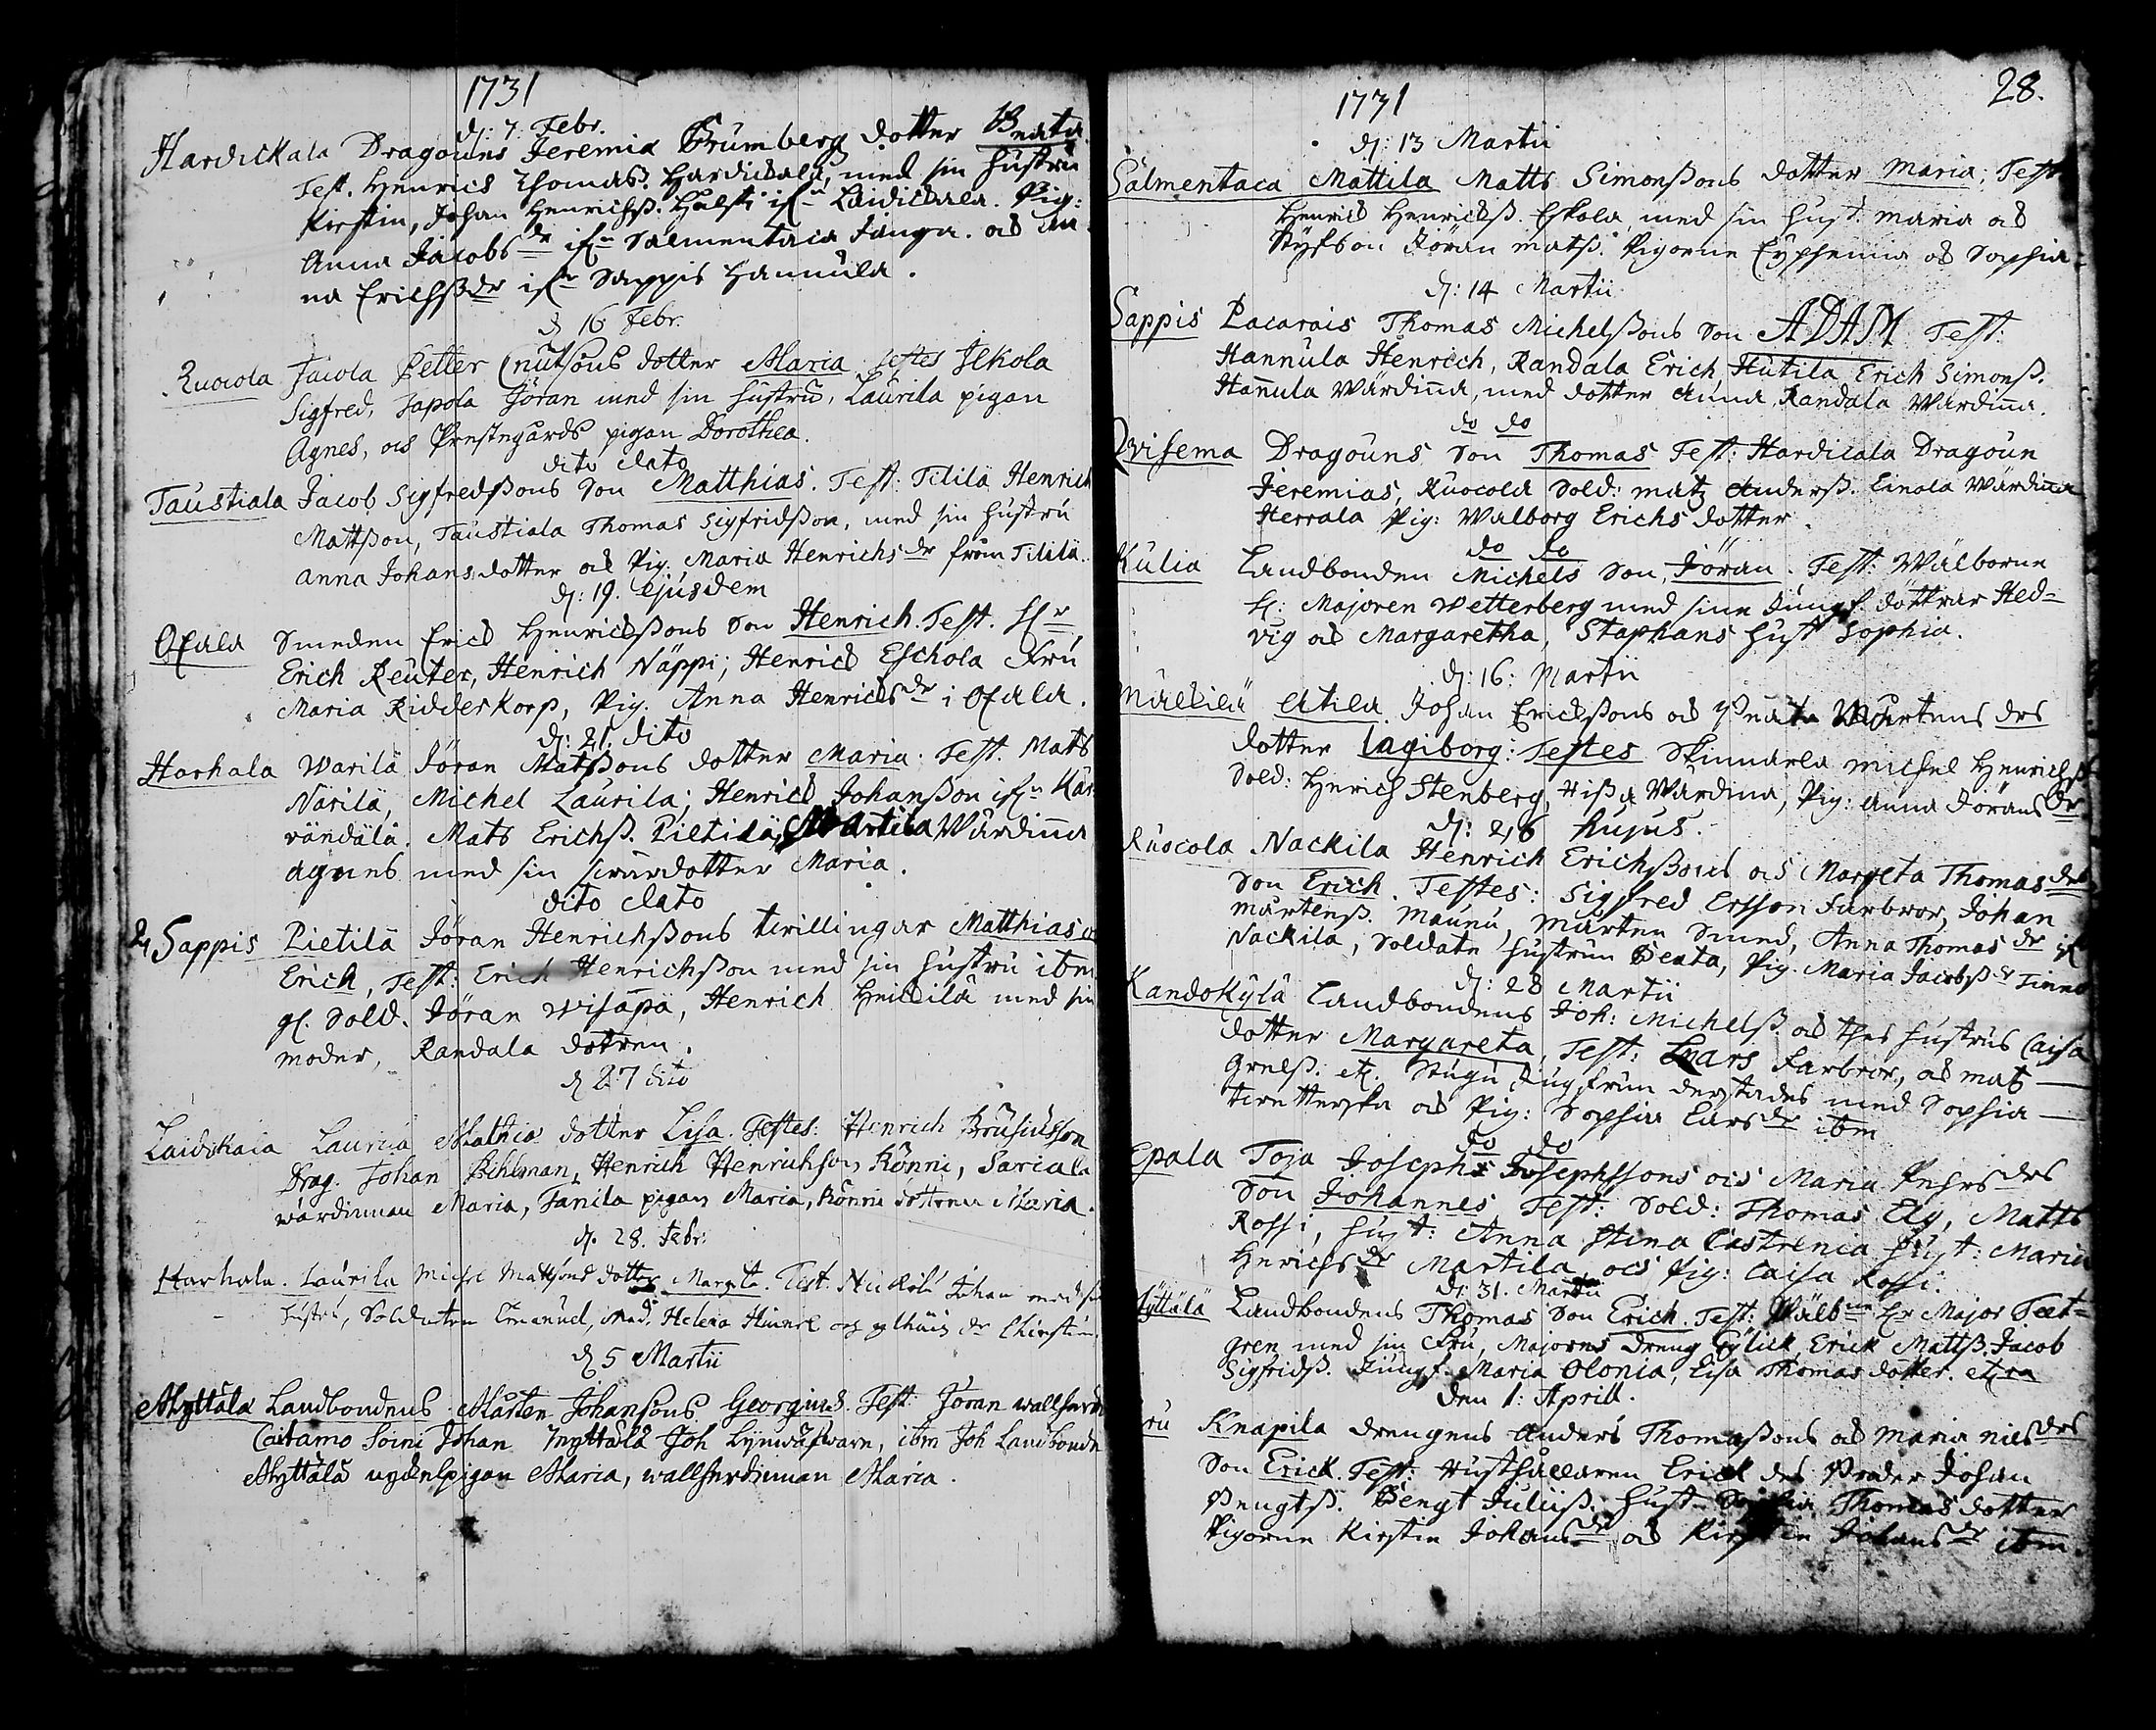 1731
d: 7 Febr.
Hardickala Dragouns Jeremia Grumberg dotter Beata
Test. Henrich Thomasß. Hardickala, med sin hustru
Kirstin, Johan Henrichß. Hulsti ifrn Laidickala. Pig:
Anna Jacobs dr ifrn Salmentaca Junga. och An
na Erichß dr ifrn Sappis Hannula.
d 16 Febr.
Ruocola Jacola Petter Cnutsons dotter Maria Testes Ilkola
Sigfred, Japola Jöran med sin hustru, Laurila pigan
Agnes, och Prestegårds pigan Dorothea.
dito dato
Taustiala Jacob Sigfredßons Son Matthias. Test: Tililä Henrich
Mattßon, Taustiala Thomas Sigfridßon, med sin hustru
Anna Johans dotter och Pig. Maria Henrichs dr från Tililä.
d: 19. ejusdem
Ofala Smeden Erich Henrichßons Son Henrich. Test. Hr
Erich Reuter, Henrich Näppi, Henrich Eschola Fru
Maria Ridderkorp, Pig. Anna Henrichs dr i Ofala.
d: 21. dito
Harhala Warilä Jöran Matßons dotter Maria. Test. Mats
Närilä, Michel Laurila, Henrich Johanßon ifrn Kär
rändälä. Mats Erichß. Pietilä, Martila Wärdinna
Agnes med sin dotter Maria.
dito dato
Sappis Pietilä Jöran Henrichßons twillingar Matthias o
Erich, Test: Erich Henrichßon med sin hustru ibm
gl. Sold. Jöran Wisapä, Henrich Heickilä med sin
moder, Randala dotren.
d 27 dito
Laidikala Laurila Mathia dotter Lisa. Testes: Henrich
Drag. Johan Pihlman, Henrich Henrichson Rönni, Sariala
wärdinnan Maria, Tanila pigan Maria, Rönni dottren Maria.
d. 28. Febr:
Harhala. Laurila Michel Mattsons dotter Margeta. Test. Nickilä Johan med sin
hustru, Soldaten Emanuel, Mad. Helena
d 5 Martii
Myttälä Landbondens Mårten Johansons Georgius. Test: Jöran
Caitamo Soini Johan Myttälä Joh ibm Joh Landbonde
Myttälä pigan Maria, Maria.
28.
1731
d: 13 Martii
Salmentaca Mattila Matts Simonßons dotter Maria; Test
Henrich Henrichß. Eskola, med sin hust. Maria och
Styfson Jöran Matß. Pigorne Eyphemia och Sophia.
d: 14 Martii
Sappis Pacarais Thomas Michelßons Son ADAM Test:
Hannula Henrich, Randala Erich, Hutila Erich Simonß.
Hanula Wärdina, med dotter Anna, Randala Wärdina.
do do
Qvisema Dragouns Son Thomas Test: Hardicala Dragoun
Jeremias, Ruocola Sold: Matz Andersß. Einola Wärdina
Herrala Pig: Walborg Erichs dotter.
do do
Kulia Landbonden Michels Son Jöran. Test: Wälborne
H: Majoren Wetterberg med sine Jungf. döttrar Hed=
vig och Margaretha, Staphans hust Sophia.
d: 16: Martii
Mälkilä Atila Johan Erichßons och Beata Mårtens drs
dotter Ingiborg: Testes Skinnarla Michel Henrichß
Sold: Henrich Stenberg, Hißa Wärdina, Pig: Anna Jörans dr.
d: 26 hujus.
Ruocola Nackila Henrich Erichßons och Margeta Thomas drs
Son Erich. Testes: Sigfred Ersson Farbror, Johan
Mårtensß. Maunu, Mårten Smed, Anna Thomas dr if
Nackila, Soldate hustrun Beata, Pig. Maria Jacobß dr
d: 28 Martii
Kandokylä Landbondens Joh: Michelß. och thes hustrus Caisa
dotter Margareta, Test: Lars Farbror, och Mats
Grelsß. etc. Stugu Jungfrun med Sophia
och Pig: Sophia Lars dr ibm
do do
Epala Toja Josephs Josephssons och Maria Pehrs drs
Son Johannes Test: Sold: Thomas Elg, Matts
Rossi, hust: Anna Stina Castrenia hust: Maria
Henrichs dr Martila, och Pig: Caisa Rossi.
d: 31. Martii
Myttälä Landbondens Thomas Son Erich. Test: Wälbne Hr Major Tat=
gren med sin Fru, Majorns dreng Gylich, Erick Mattß. Jacob
Sigfridß. Jungf. Maria Olonia, Lisa Thomas dotter. etc:ra
den 1: Aprill.
Knapila drengens Anders Thomaßons och Maria Nils drs
Son Erick. Test: Husthållaren Erick des Broder Johan
Bengtß. Bengt Juliiß. hust. Sophia Thomas dotter
Pigorne Kirstin Johans dr och Kirstin Johans dr ibm.